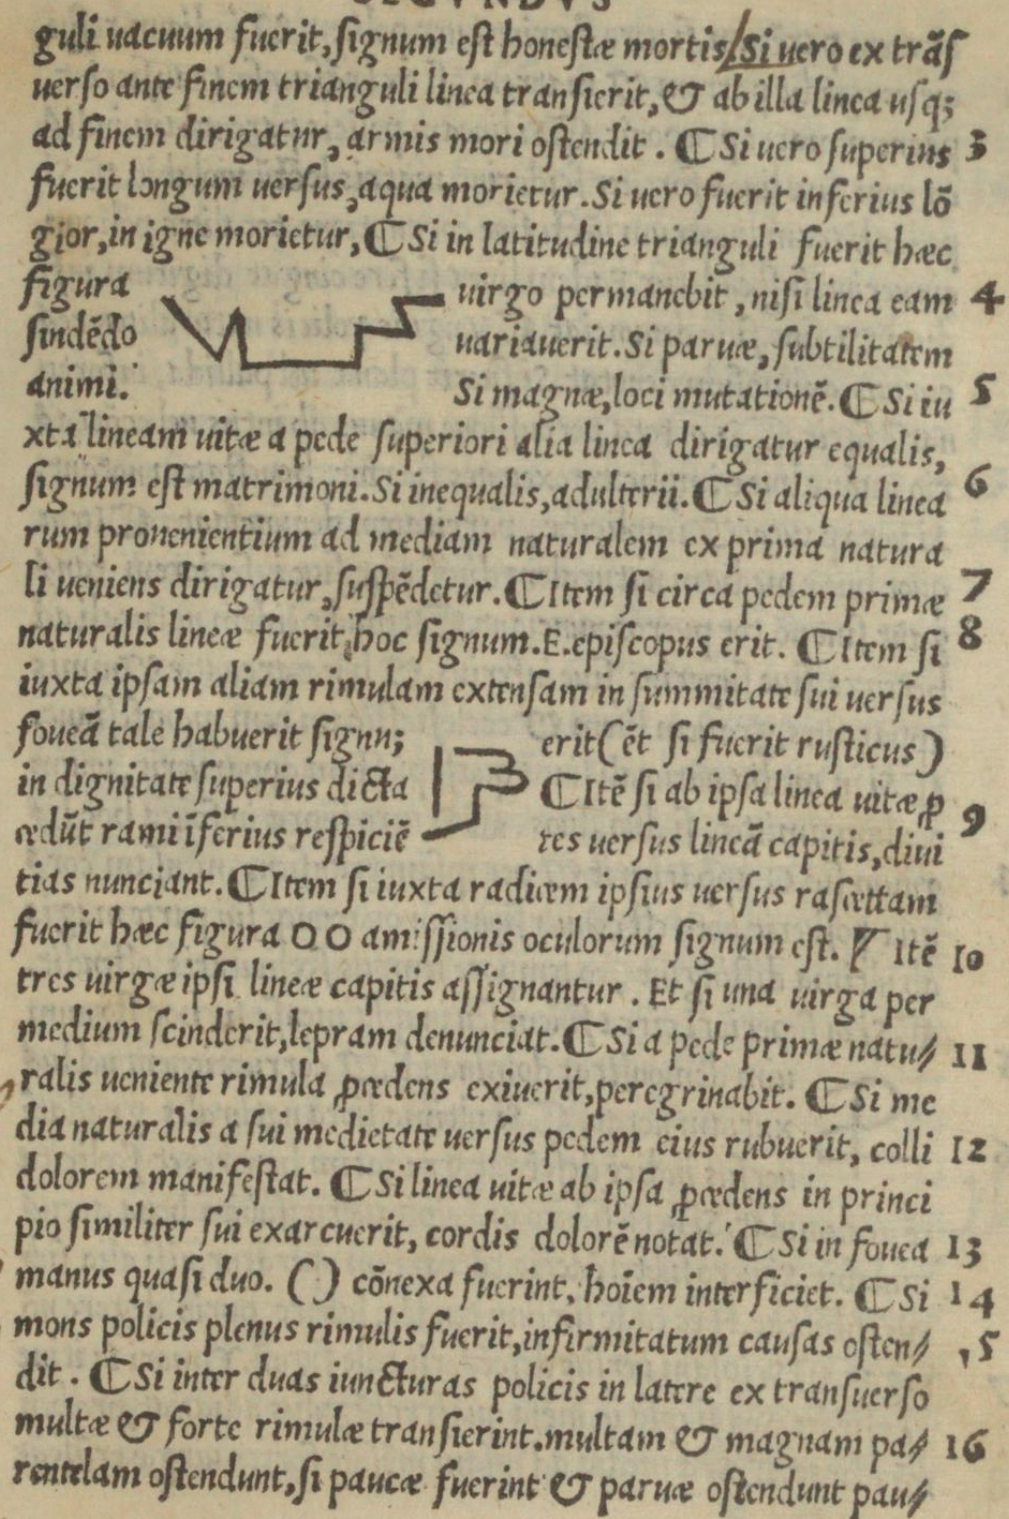 SECVNDVS
guli uacuum fuerit, signum est honestæ mortis/ Si uero ex trãs
uerso ante finem trianguli linea transierit, & ab illa linea usq;
ad finem dirigatur, armis mori ostendit. ¶ Si uero superius 3
fuerit longum uersus, aqua morietur. Si uero fuerit inferius lõ
gior, in igne morietur, ¶ Si in latitudine trianguli fuerit hæc
figura uirgo permanebit, nisi linea eam 4
sindẽdo uariauerit. Si paruæ, subtilitatem
animi. Si magnæ, loci mutationẽ. ¶ Si iu 5
xta lineam uitæ a pede superiori alia linea dirigatur equalis,
signum est matrimoni. Si inequalis, adulterii. ¶ Si aliqua linea 6
rum prouenientium ad mediam naturalem ex prima natura
li ueniens dirigatur, suspẽdetur. ¶ Item si circa pedem primæ 7
naturalis lineæ fuerit, hoc signum. E. episcopus erit. ¶ Item si 8
iuxta ipsam aliam rimulam extensam in summitate sui uersus
foueã tale habuerit signũ; erit (ẽt si fuerit rusticus)
in dignitate superius dicta ¶ Itẽ si ab ipsa linea uitæ ꝓ
cedũt rami ĩferius respiciẽ tes uersus lineã capitis, diui 9
tias nunciant. ¶ Item si iuxta radicem ipsius uersus rascettam
fuerit hæc figura O O amissionis oculorum signum est. ¶ Itẽ 10
tres uirgæ ipsi lineæ capitis assignantur. Et si una uirga per
medium scinderit, lepram denunciat. ¶ Si a pede primæ natu⸗ 11
ralis ueniente rimula ꝓcedens exiuerit, peregrinabit. ¶ Si me
dia naturalis a sui medietate uersus pedem eius rubuerit, colli 12
dolorem manifestat. ¶ Si linea uitæ ab ipsa ꝓcedens in princi
pio similiter sui exarcuerit, cordis dolorẽ notat. ¶ Si in fouea 13
manus quasi duo. ( ) cõnexa fuerint, hoĩem interficiet. ¶ Si 14
mons policis plenus rimulis fuerit, infirmitatum causas osten⸗ 15
dit. ¶ Si inter duas iuncturas policis in latere ex transuerso
multæ & forte rimulæ transierint. multam & magnam pa⸗ 16
rentelam ostendunt, si paucæ fuerint & paruæ ostendunt pau⸗